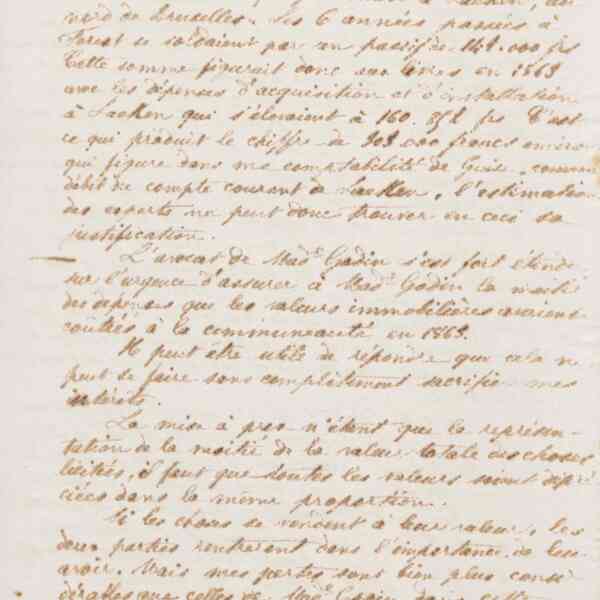 nord de Bruxelles. Les 6 années passées à
Forest se soldaient par un passif de 148.000 frs
Cette somme figurait donc aux livres en 1863
avec les dépenses d'acquisition et d'installation
à Laeken qui s'élevaient à 160.852 frs C'est
ce qui produit le chiffre de 308.000 francs environ
qui figure dans ma comptabilité de Guise, comme
débit du compte courant de Laeken, l'estimation
des experts ne peut donc trouver en ceci sa
justification.
L'avocat de Made Godin s'est fort étendu
sur l'urgence d'assurer à Made Godin la moitié
des dépenses que les valeurs immobilières avaient
coûtées à la communauté en 1863.
Il peut être utile de répondre que cela ne
peut se faire sans complètement sacrifier mes
intérêts.
La mise à prix n'étant que la représen-
tation de la moitié de la valeur totale des choses
licitées, il faut que toutes les valeurs soient dépré
ciées dans la même proportion.
Si les choses se vendent à leur valeur, les
deux parties rentreront dans l'importance de leur
avoir. Mais mes pertes sont bien plus consi
dérables que celles de Made Godin dans cette